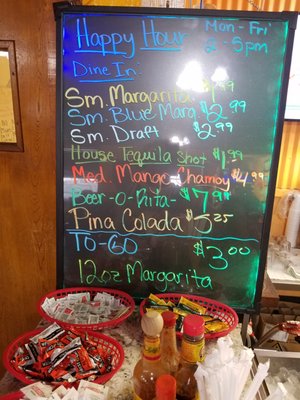 Happy Hour Mon-Fri
2-5pm
Dine In
Sm. Margarita $1.99
Sm. Blue Marg. $2.99
Sm. Draft $2.99
House Tequila Shot $1.99
Med. Mango Chamoy $4.99
Beer-O-Rita- $7.99
Pina Colada $5.25
TO-GO $3.00
12oz Margarita